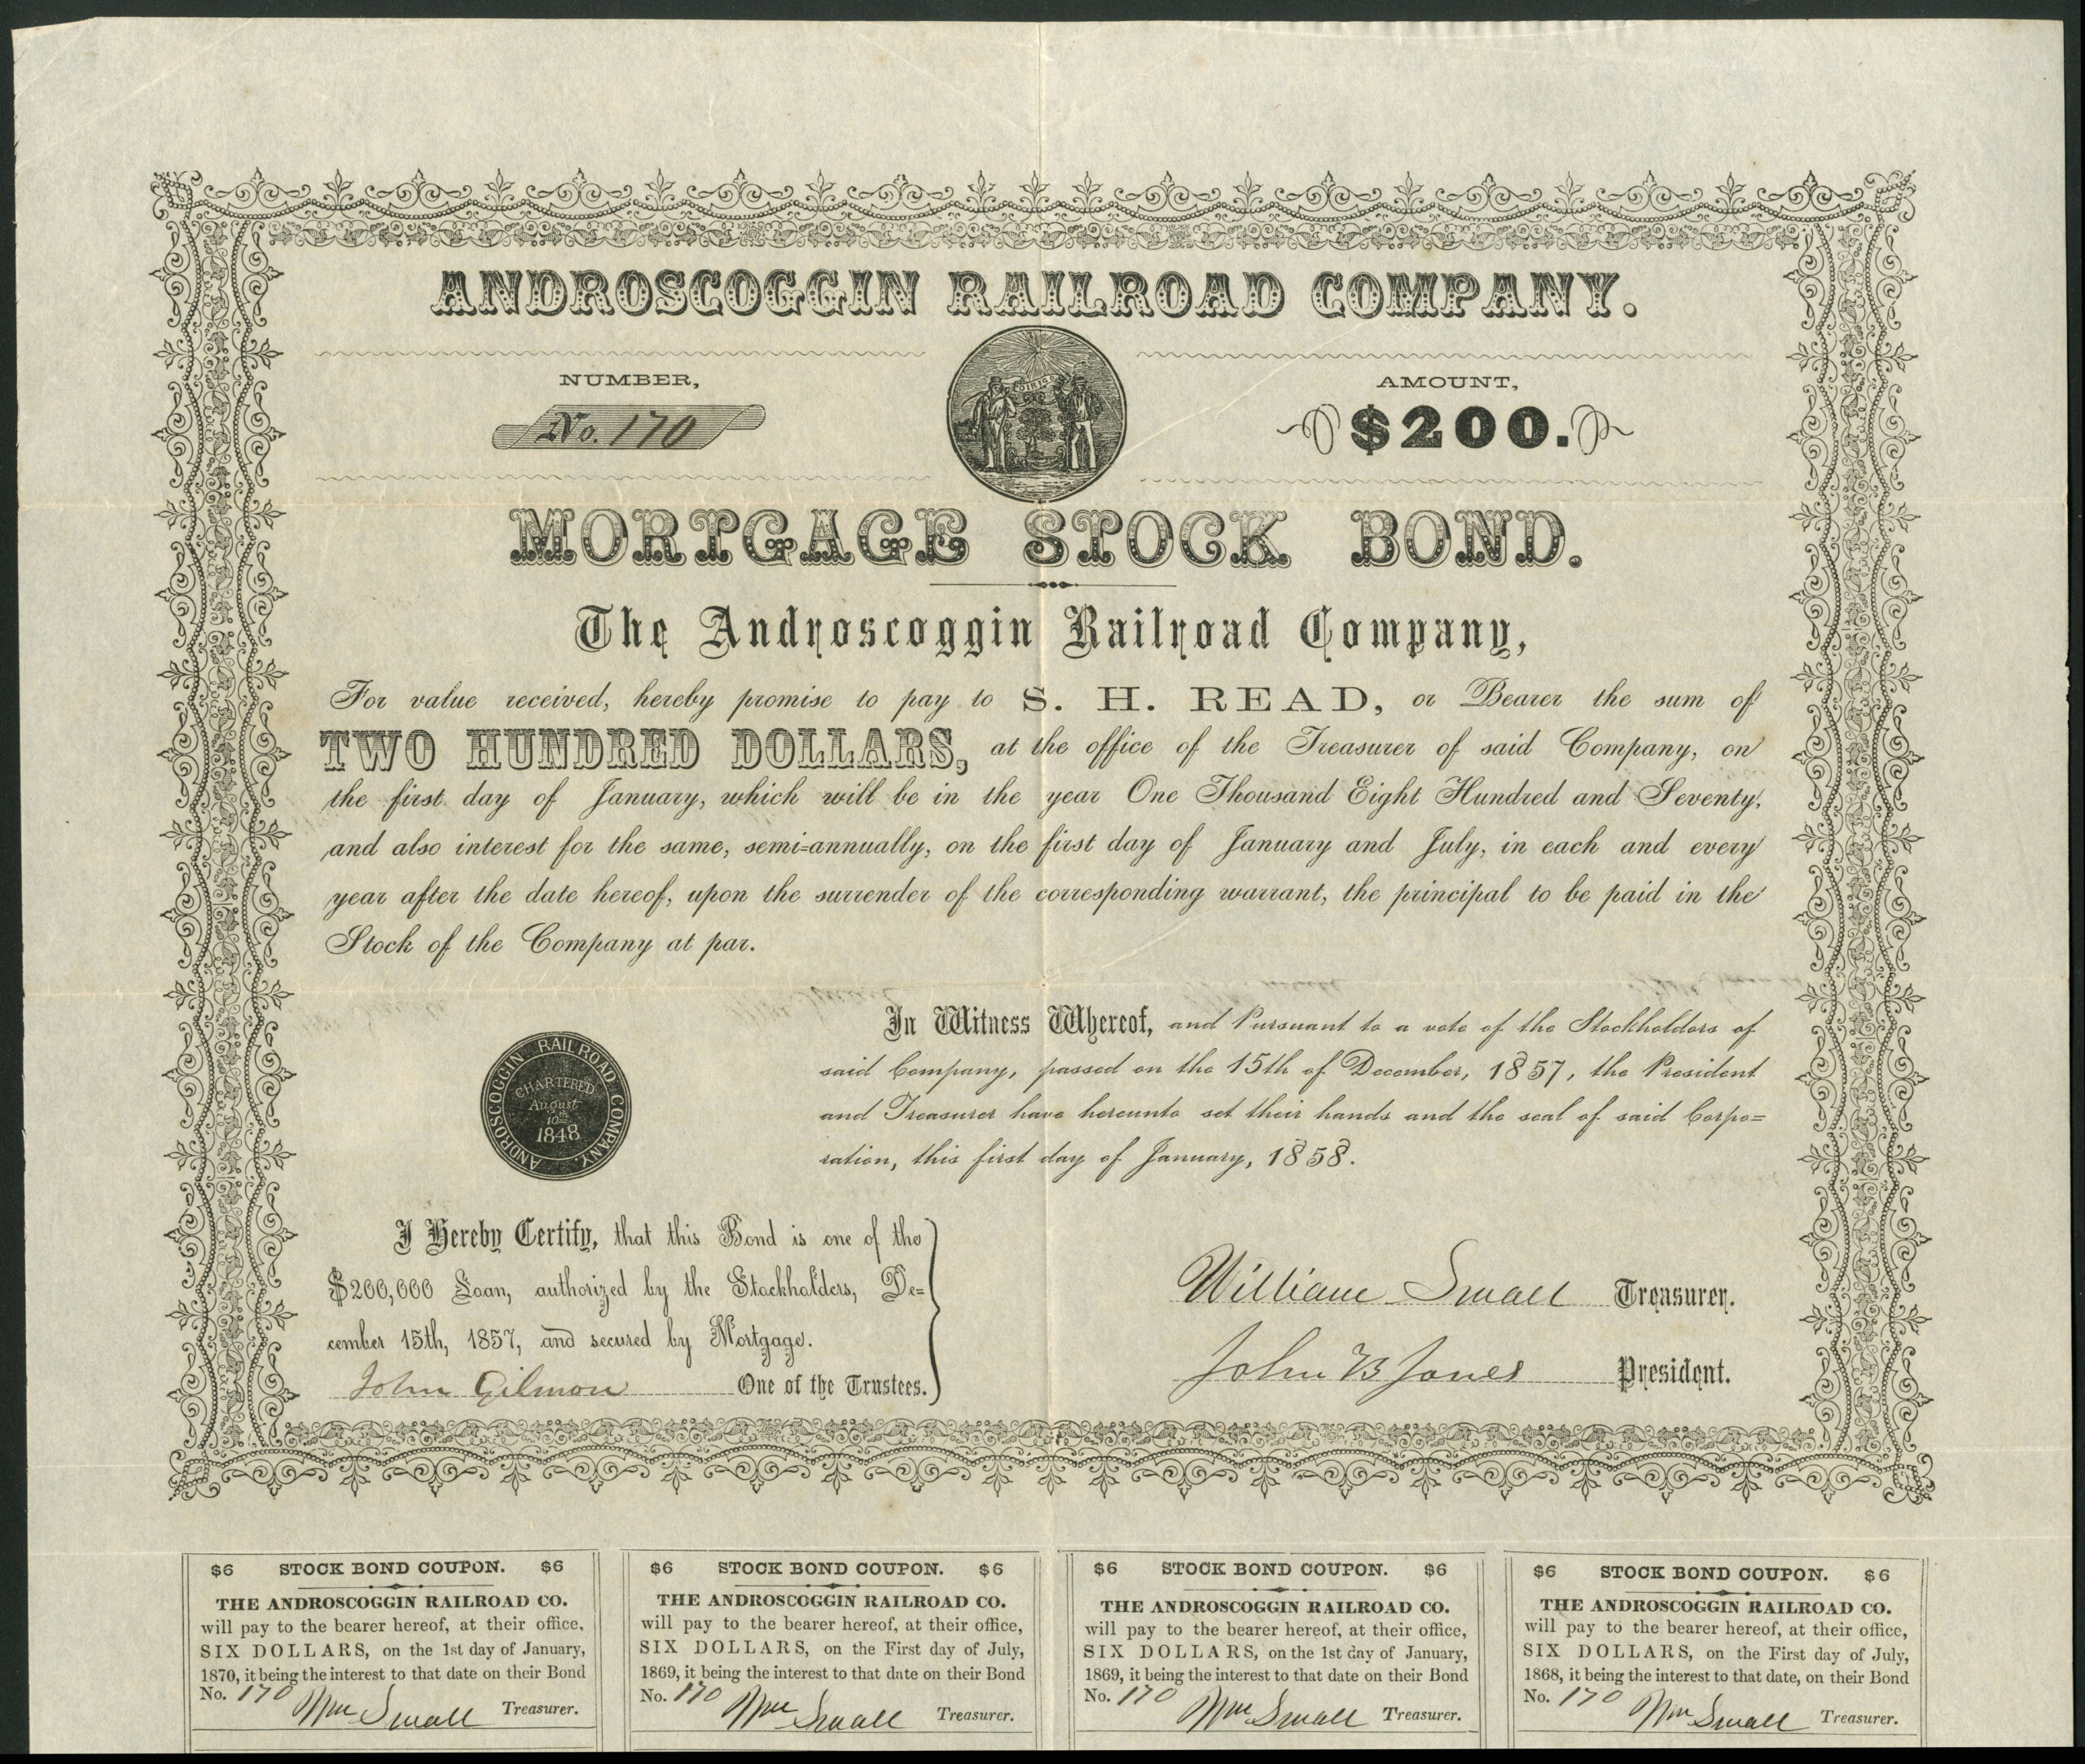 ANDROSCOGGIN RAILROAD COMPANY.
NUMBER,
No. 170
DIRIGO
AMOUNT,
$200.
MORTGAGE STOCK BOND.
The Androscoggin Railroad Company,
For value received, hereby promise to pay to S. H. READ, or Bearer the sum of
TWO HUNDRED DOLLARS, at the office of the Treasurer of said Company, on
the first day of January, which will be in the year One Thousand Eight Hundred and Seventy,
and also interest for the same, semi-annually, on the first day of January and July, in each and every
year after the date hereof, upon the surrender of the corresponding warrant, the principal to be paid in the
Stock of the Company at par.
In Witness Whereof, and Pursuant to a vote of the Stockholders of
said Company, passed on the 15th of December, 1857, the President
and Treasurer have hereunto set their hands and the seal of said Corpo=
ration, this first day of January, 1858.
ANDROSCOGGIN RAILROAD COMPANY.
CHARTERED
August
10th
1848
I Hereby Certify, that this Bond is one of the
$200,000 Loan, authorized by the Stockholders, De=
cember 15th, 1857, and secured by Mortgage.
John Gilmon One of the Trustees.
William Small Treasurer.
John B Jones President.
$6 STOCK BOND COUPON. $6
THE ANDROSCOGGIN RAILROAD CO.
will pay to the bearer hereof, at their office,
SIX DOLLARS, on the 1st day of January,
1870, it being the interest to that date on their Bond
No. 170 Wm Small Treasurer.
$6 STOCK BOND COUPON. $6
THE ANDROSCOGGIN RAILROAD CO.
will pay to the bearer hereof, at their office,
SIX DOLLARS, on the First day of July,
1869, it being the interest to that date on their Bond
No. 170 Wm Small Treasurer.
$6 STOCK BOND COUPON. $6
THE ANDROSCOGGIN RAILROAD CO.
will pay to the bearer hereof, at their office,
SIX DOLLARS, on the 1st day of January,
1869, it being the interest to that date on their Bond
No. 170 Wm Small Treasurer.
$6 STOCK BOND COUPON. $6
THE ANDROSCOGGIN RAILROAD CO.
will pay to the bearer hereof, at their office,
SIX DOLLARS, on the First day of July,
1868, it being the interest to that date, on their Bond
No. 170 Wm Small Treasurer.